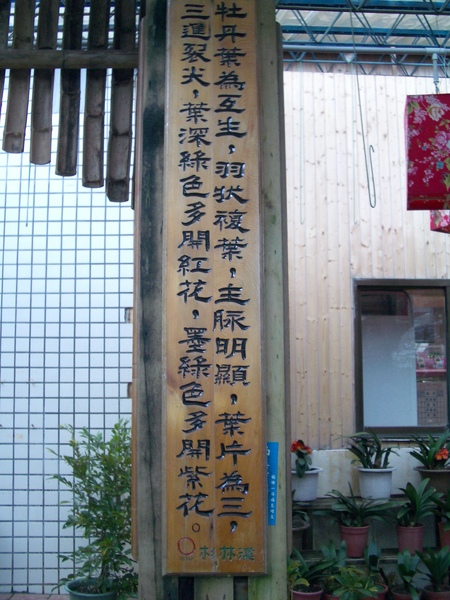 牡丹葉為互生，羽狀複葉，主脈明顯，葉片為三，
三進裂尖，葉深綠色多開紅花，墨綠色多開紫花。
杉林溪